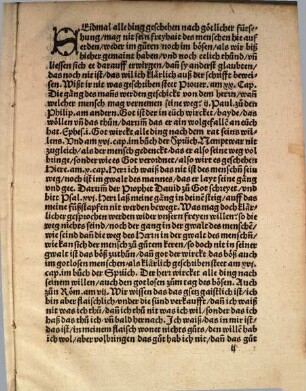 SEidmal alle ding geschehen nach götlicher fürse-
hung/mag nit sein freyhait des menschen hie auf
erden/weder im güten noch im bösen/als wir biß
hieher gemaint haben/vnd noch etlich thünd/vñ
liessen sich ee darauff erwürgen/dañ sy anderst glaubten/
das noch nie ist/das wil ich klärlich auß der schrifft bewei-
sen. Wißt ir nit was geschriben steet Prouer. am xx. Cap.
Die gäng des mañs werden geschickt von dem herrn/wañ
welcher mensch mag vernemen seine weg? vñ Paul. zů den
Philip. am andern. Got ist der in eüch würcket/bayde/das
wöllen vñ das thün/darum̃ das er ain wolgefalle an eüch
hat. Ephes.i. Got wirckt alle ding nach dem rat seins wil-
lens. Vnd am xvi. cap. im bůch der Sprüch. Nemperat nit
zugleich/als der mensch gedenckt/das er also seine weg vol
bringe/sonder wie es Got verordnet/also wirt es geschehen
Hiere. am .x. cap. Herr ich waiß das nit ist des menschen sein
weg/noch ist in gwalt des mannes/das er laytt seine gäng
vnd gee. Darum̃ der Prophet Dauid zů Got schreyet/vnd
bitt Psal. xvi. Herr laß meine gäng in dein steig/auff das
meine füßstapfen nit werden bewegt. Was mag doch klär-
licher gesprochen werden wider vnsern freyen willen: so die
weg nichts seind/noch der gang in der gwalt des menschẽ/
wie seind dañ die weg des Herrn in der gwalt des menschẽ/
wie kan sich der mensch zů gütem keren/so doch nit in seiner
gwalt ist das böß zůthün/dañ got der wirckt das böß auch
im gotlosen menschen/als klärlich geschriben steet am xvi.
cap. im bůch der Sprüch. Der herr wirckt alle ding nach
seinem willen/auch den gotlosen zům tag des bösen. Auch
zů den Röm. am vii. Wir wissen das das gsetz gaistlich ist/ich
bin aber flaischlich/vnder die sünd verkaufft/dañ ich waiß
nit was ich thů/dañ ich thů nit was ich wil/sonder das ich
haß das thů ich vñ bald hernach. Ich waiß das in mir ist/
das ist/in meinem flaisch wonet nichts güts/den wille hab
ich wol/aber volbringen das güt hab ich nit/dañ das güt
ij